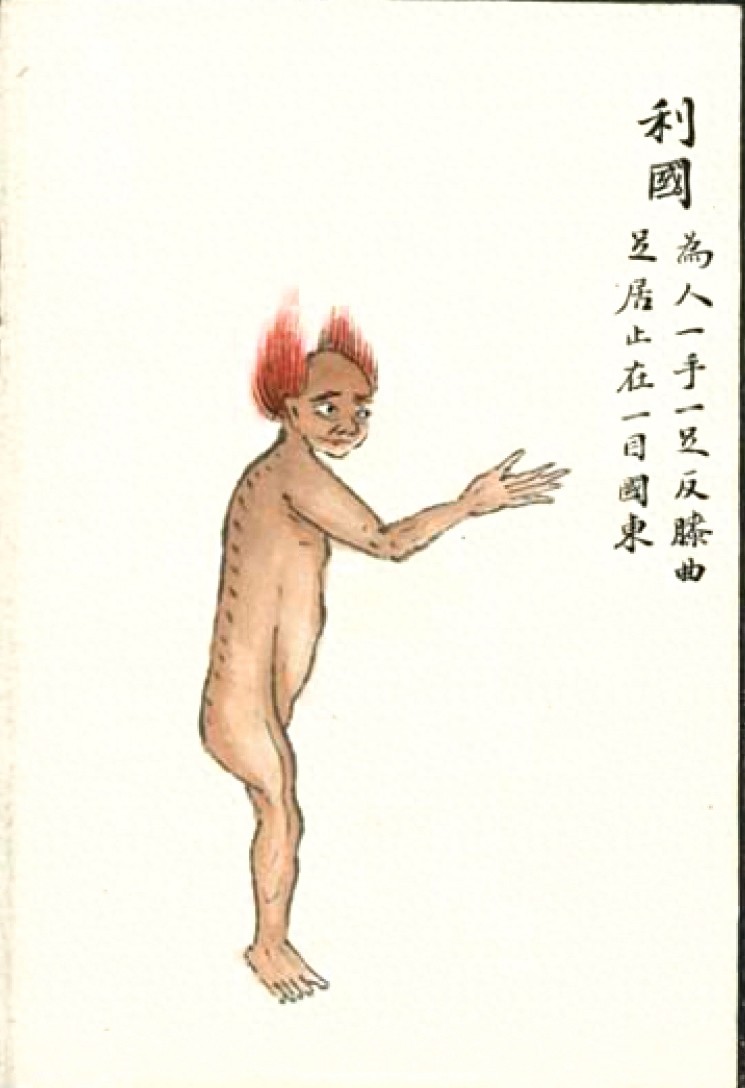 利國
為人一手一足反膝曲
足居止在一目國東